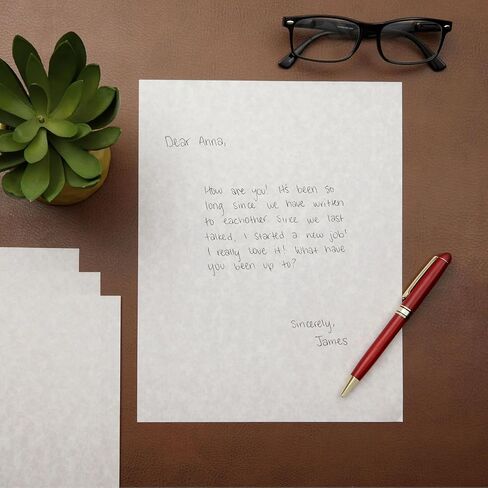 Dear Anna,
How are you! It's been so
long since we have written
to eachother. Since we last
talked, I started a new job!
I really love it! What have
you been up to?
Sincerely,
James